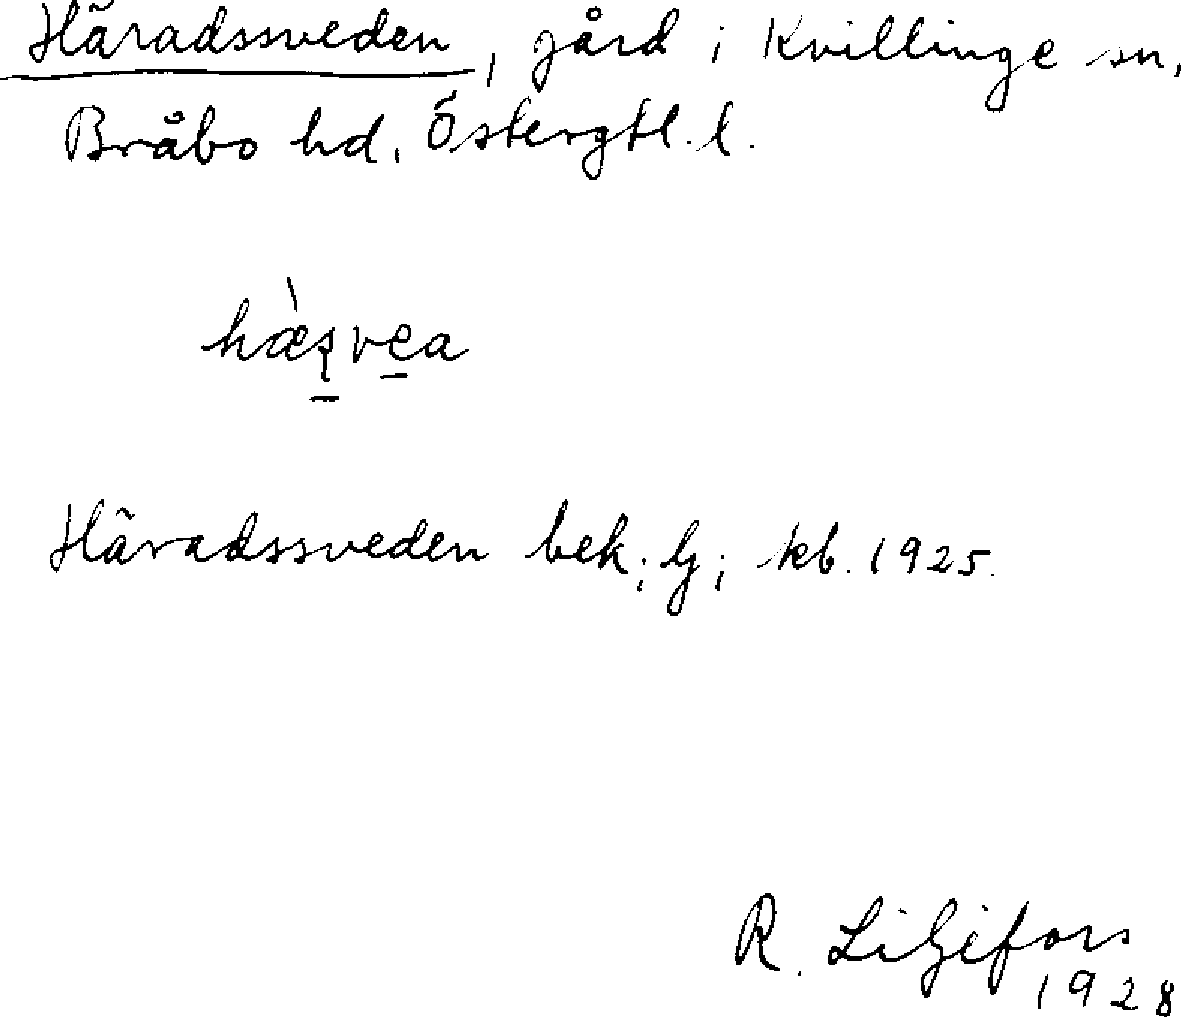 Häradssveden, gård i Kvillinge sn,
Bråbo hd. Östergtl. l.
hæ̀ʂvea
Häradssveden bek; lj; kb. 1925.
R. Liljefors
1928